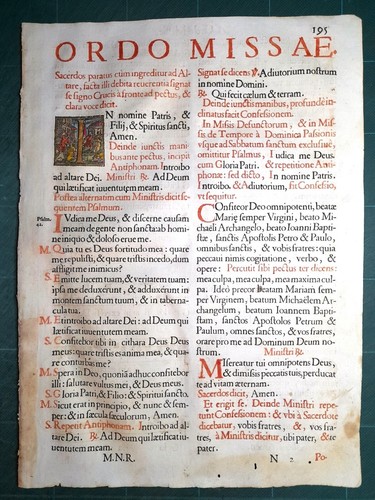 195
ORDO MISSAE.
Sacerdos paratus cùm ingreditur ad Al-
tare, facta illi debita reuerentia signat
se signo Crucis à fronte ad pectus, &
clara voce dicit.
N nomine Patris, &
Filij, & Spiritus sancti,
Amen.
Deinde iunctis mani
bus ante pectus, incipit
Antiphonam. Introibo
ad altare Dei. Ministri ℟. Ad Deum
qui lætificat iuuentutem meam.
Postea alternatim cum Ministris dicit se-
quentem Psalmum.
Psalm.
42.
Iudica me Deus, & discerne causam
meam de gente non sancta: ab homi-
ne iniquo & doloso erue me.
M. Quia tu es Deus fortitudo mea: quare
me repulisti, & quare tristis incedo, dum
affligit me inimicus?
S. Emitte lucem tuam, & veritatem tuam:
ipsa me deduxerunt, & adduxerunt in
montem sanctum tuum, & in taberna-
cula tua.
M. Et introibo ad altare Dei: ad Deum qui
lætificat iuuentutem meam.
S. Confitebor tibi in cithara Deus Deus
meus: quare tristis es anima mea, & qua-
re conturbas me?
M. Spera in Deo, quoniã adhuc confitebor
illi: salutare vultus mei, & Deus meus.
S. Gloria Patri, & Filio: & Spiritui sancto.
M. Sicut erat in principio, & nunc, & sem-
per: & in sæcula sæculorum, Amen.
S. Repetit Antiphonam. Introibo ad
altare Dei. ℟. Ad Deum qui lætificat iu-
uentutem meam.
M.N.R.
Signat se dicens ℣. Adiutorium nostrum
in nomine Domini.
℟. Qui fecit cælum & terram.
Deinde iunctis manibus, profundè in-
clinatus facit Confessionem.
In Missis Defunctorum, & in Mis-
sis de Tempore à Dominica Passionis
vsque ad Sabbatum sanctum exclusiuè,
omittitur Psalmus, Iudica me Deus.
cum Gloria Patri. & repetitione Anti-
phonæ: sed dicto, In nomine Patris.
Introibo. & Adiutorium, fit Confessio,
vt sequitur.
Confiteor Deo omnipotenti, beatæ
Mariæ semper Virgini, beato Mi-
chaëli Archangelo, beato Ioanni Bapti-
stæ, sanctis Apostolis Petro & Paulo,
omnibus sanctis, & vobis fratres: quia
peccaui nimis cogitatione, verbo, &
opere: Percutit sibi pectus ter dicens:
mea culpa, mea culpa, mea maxima cul-
pa. Ideo precor Beatam Mariam sem-
per Virginem, beatum Michaëlem Ar-
changelum, beatum Ioannem Bapti-
stam, sanctos Apostolos Petrum &
Paulum, omnes sanctos, & vos fratres,
orare pro me ad Dominum Deum no-
strum. Ministri ℟.
Misereatur tui omnipotens Deus,
& dimissis peccatis tuis, perducat
te ad vitam æternam.
Sacerdos dicit, Amen.
Et erigit se. Deinde Ministri repe-
tunt Confessionem: & vbi à Sacerdote
dicebatur, vobis fratres, &, vos fra-
tres, à Ministris dicitur, tibi pater, & te
pater.
N 2. Po-